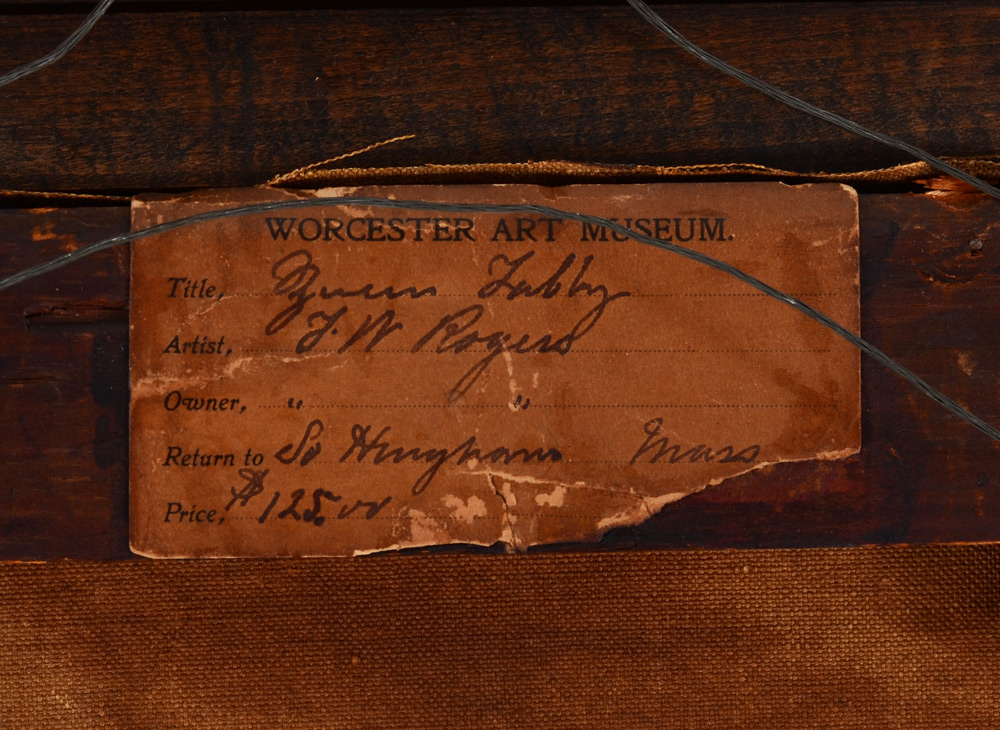 WORCESTER ART MUSEUM.
Title, Queen Tabby
Artist, F. W Rogers
Owner, " "
Return to So Hingham Mass
Price, $125.00